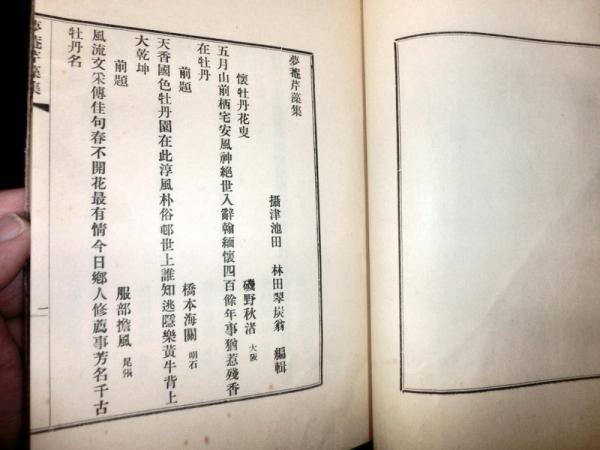 夢菴芹藻集
攝津池田 林田翠炭翁 編輯
懷牡丹花叟 磯野秋渚 大阪
五月山前栖宅安風神絕世入辭翰緬懷四百餘年事猶惹殘香
在牡丹
前題 橋本海關 明石
天香國色牡丹園在此淳風朴俗邨世上誰知逃隱樂黃牛背上
大乾坤
前題 服部擔風 尾張
風流文采傳佳句春不開花最有情今日鄉人修薦事芳名千古
牡丹名
夢菴芹藻集
一